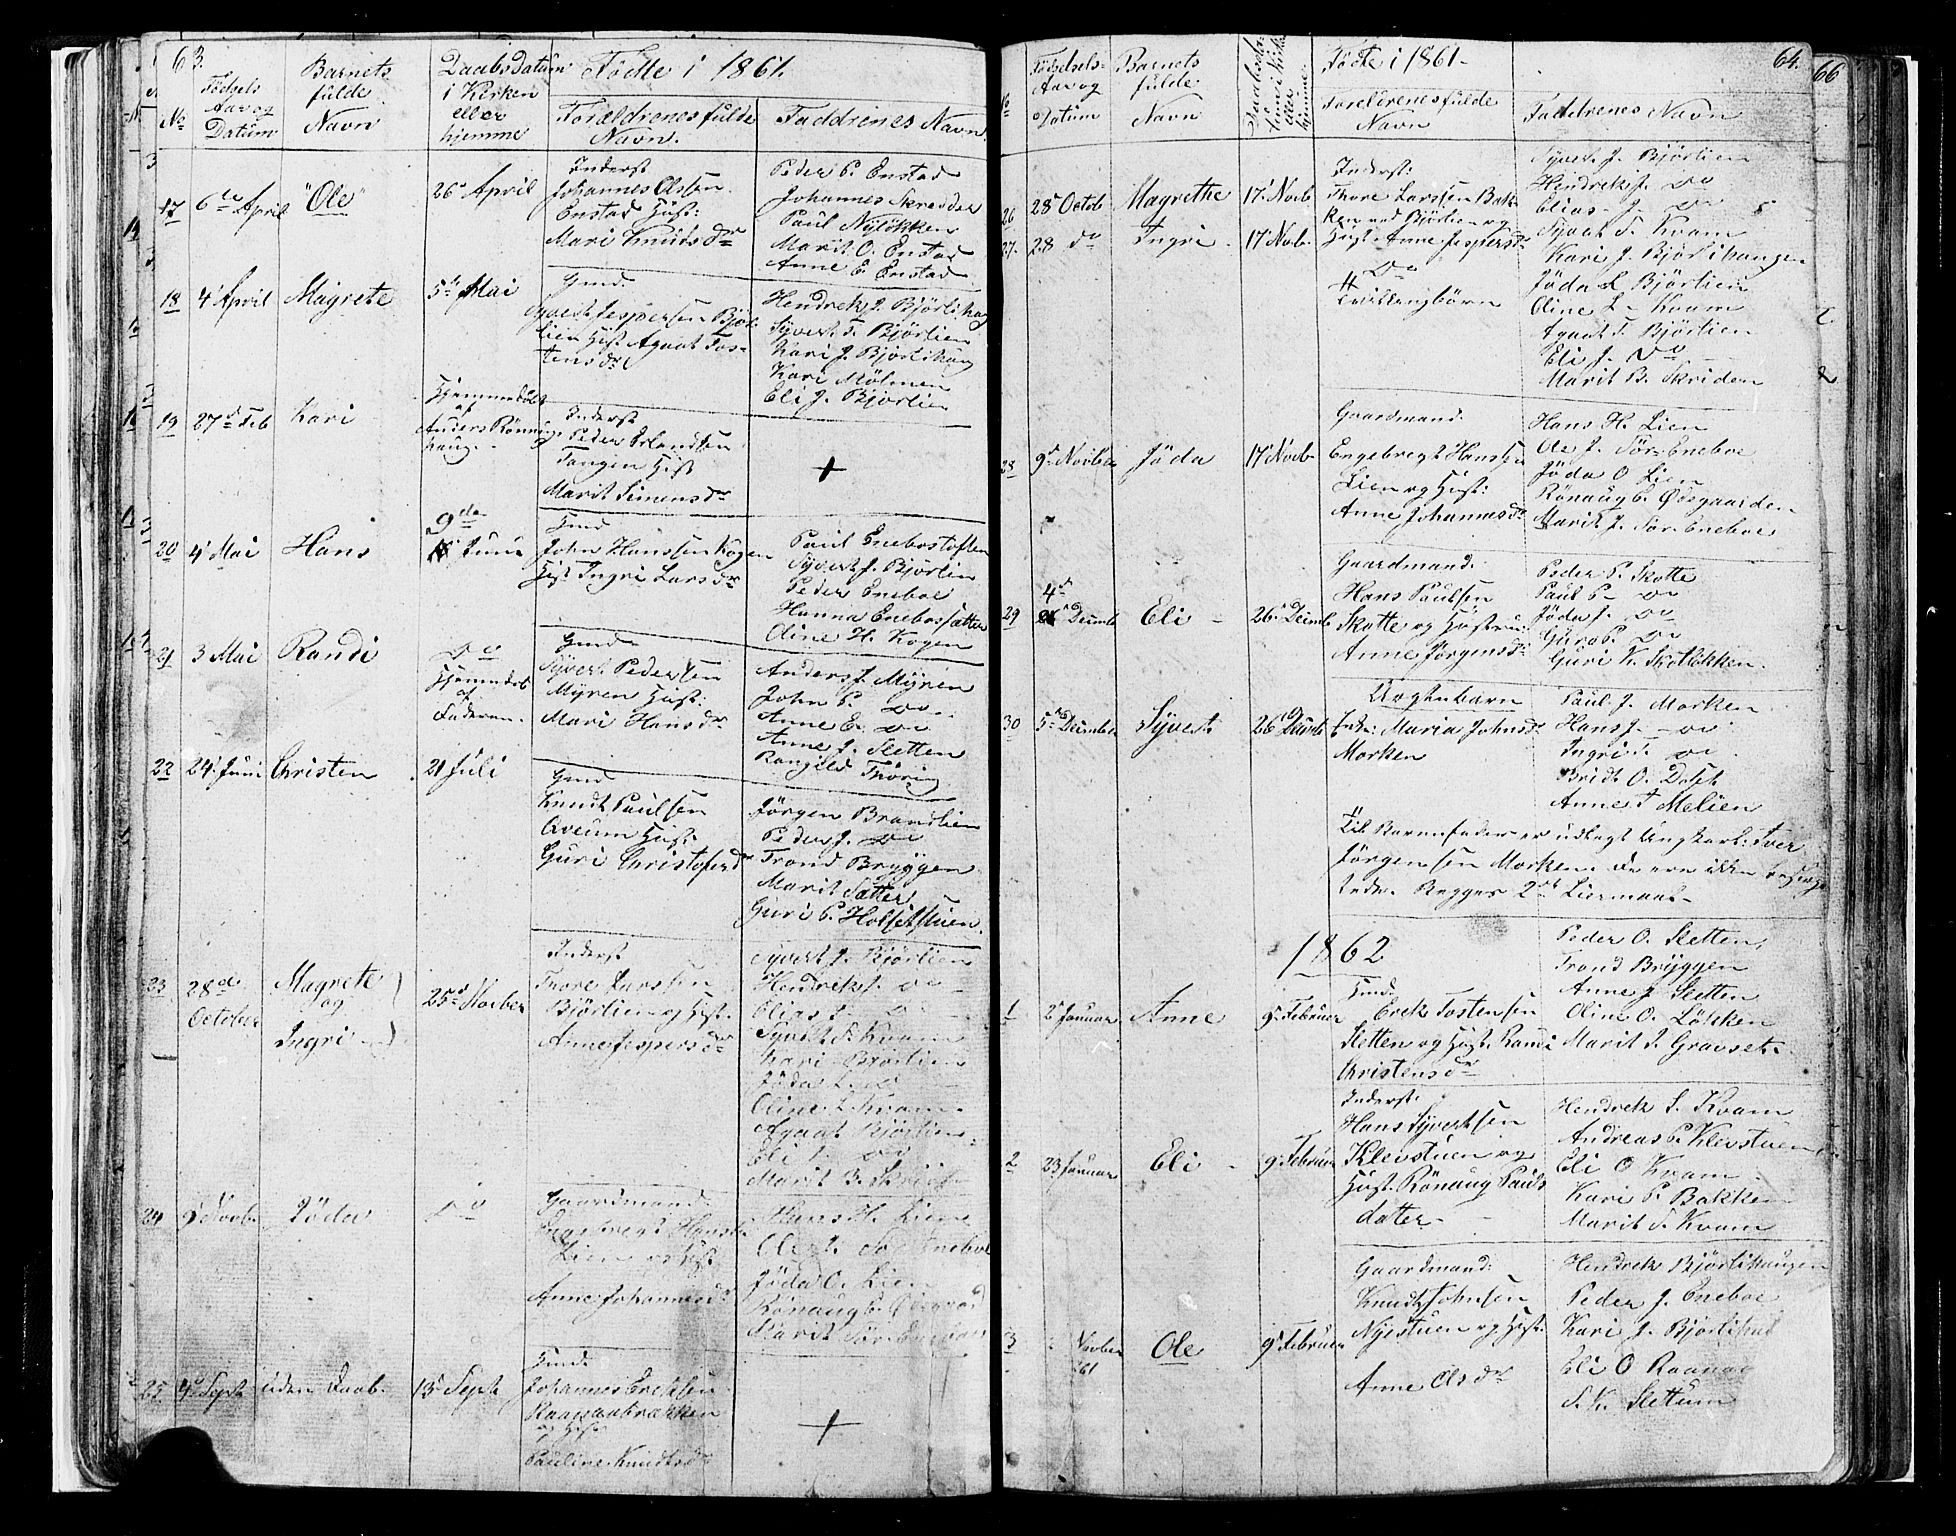 63.
Fødte i 1861.
No
Fødsels
Aar og
Datum
Barnets
fulde
Navn
Daabsdatum
i Kirken
eller
hjemme
Forældrenes fulde
Navn.
Faddrenes Navn
17
6te April
"Ole"
26. April
Inderst
Johannes Olssen
Enstad Hust:
Mari Knuts Dr
Peder P. Enstad
Johannes Skredder
Paul Nyløkken
Marit O. Enstad
Anne E. Enstad
18
4 April
Magrete
5te Mai
Hmd.
Syvert Jespersen Bjør
lien Hust Agaat Tos-
tens dr
Hendrek J. Bjørlihaug
Syvert T. Bjørlien
Kari J. Bjørlihaug
Kari Mølmen
Eli J. Bjørlien
19
27d Feb
Kari
Hjemmedøbt
af
Anders Rønning
haug.
Inderst
Peder Erlandsen
Tangen Hust
Marit Simensdr
+
20
4 Mai
Hans
9de
Juni
Hmd
John Hanssen Kogen
Hust Ingri Larsdr
Paul Enebostuflten
Syvert J. Bjørlien
Peder Eneboe
Hanna Enebosætter
Oline H. Kogen
21
3 Mai
Randi
Do
Hjemmedøbt
af
Faderen
Hmd
Syvert Pedersen
Myren Hust:
Mari Hansdr
Anders J. Myren
John P. Do
Anne E. Do
Anne J. Sletten
Rangild Thøring
22
24 Juni
Christen
21 Juli
Hmd
Knudt Paulsen
Aveum Hust.
Guri Christofersdr
Jørgen Brandlien
Peder J. Do
Trond Bryggen
Marit Sætter
Guri P. Holsetstuen.
23
28de
October
Magrete
og
Ingri
25d Novber
Inderst
Thore Larssen
Bjørlien og Hust.
Anne Jespersdr
Syvert J. Bjørlien
Hendrek J. Do
Elias J. Do
Syvert S. Kvam
Kari Bjørlien
Jøda L. Do
Oline L. Kvam
Agaat Bjørlien
Eli J. Do
Marit B. Skriden
24
9 Novb.
Jøda
Do
Gaardmand
Engebregt Hanssen
Lien og Hust
Anne Johannesdr
Hans H. Lien
Ole J. Sør Eneboe
Jøda O. Lien
Rønaug E. Øiegaard
Marit Sør-Eneboe
25
4d Sept
uden Daab.
15 Sept
Hmd.
Johannes Ereksen
Raanaabrækken
og Hust
Pauline Knudtsdr
+
64.
66
Fødte i 1861.
Fødsels-
Aar og
Datum
Barnets
fulde
Navn
Forældrenes fulde
Navn
Faddrenes Navn
26
28 Octob
Magrethe
17 Novb
27.
28 do
Ingri
17 Novb.
Inderst:
Thore Larssen Bak
ken ved Bjørlien og
Hust. Anne Jespersdr
Do
Tvillingbørn
Syvert J. Bjørlien
Hendrek J. Do
Elias J. Do
Syvert S. Kvam
Kari J. Bjørlihaugen
Jøda L Bjørlien
Oline L. Kvam
Agaat T. Bjørlien
Eli J. Do
Marit B. Skriden
28
9d Novber
Jøda
17 Novb
Gaardmand.
Engebregt Hanssen
Lien og Hust:
Anne Johannesdr
Hans H. Lien
Ole J. Sør-Eneboe
Jøda O Lien
Rønaug E. Ødegaarden
Marit J. Sør-Eneboe
29
4d
Decemb
Eli
26 Decemb
Gaardmand:
Hans Paulsen
Skotte og Hustru
Anne Jørgensdr
Peder P. Skotte
Paul P. Do
Jøda J. Do
Guro P. Do
Guri K. Skotløkken.
30
5te December
Syvert
26 Decemb
Uægtebarn
Inds: Maria Johnsdr
Morken
Paul J. Morken
Hans J. Do
Ingri S. Do
Bridt O. Doset
Anne T Melien
Til Barnefader er udlagt Ungkarl: Iver
Jørgensen Morken De ere ikke besvog-
rede. Begges 2det Leiermaal.
1862
1
2 Januar
Anne
9 Februar
Hmd.
Erek Tostensen
Sletten og Hust. Randi
Christensdr
Peder O. Sletten
Trond Bryggen
Anne J Sletten
Oline O. Løkken
Marit S. Gravset.
2
23 Januar
Eli
9 Februar
Inderst.
Hans Syvertsen
Klevstuen og
Hust. Rønaug Pauls
datter
Hendrek S. Kvam
Andreas P. Klevstuen
Eli O Kvam
Kari P. Bakken
Marit S. Kvam
3
Novber
61
Ole
9 Februar
Gaardmand:
Knudt Johnsen
Nystuen og Hust.
Anne Olsdr
Hendrek Bjørlihaugen
Peder J. Eneboe
Kari J. Bjørlihul
Eli O Raanaa
S. K. Slettum